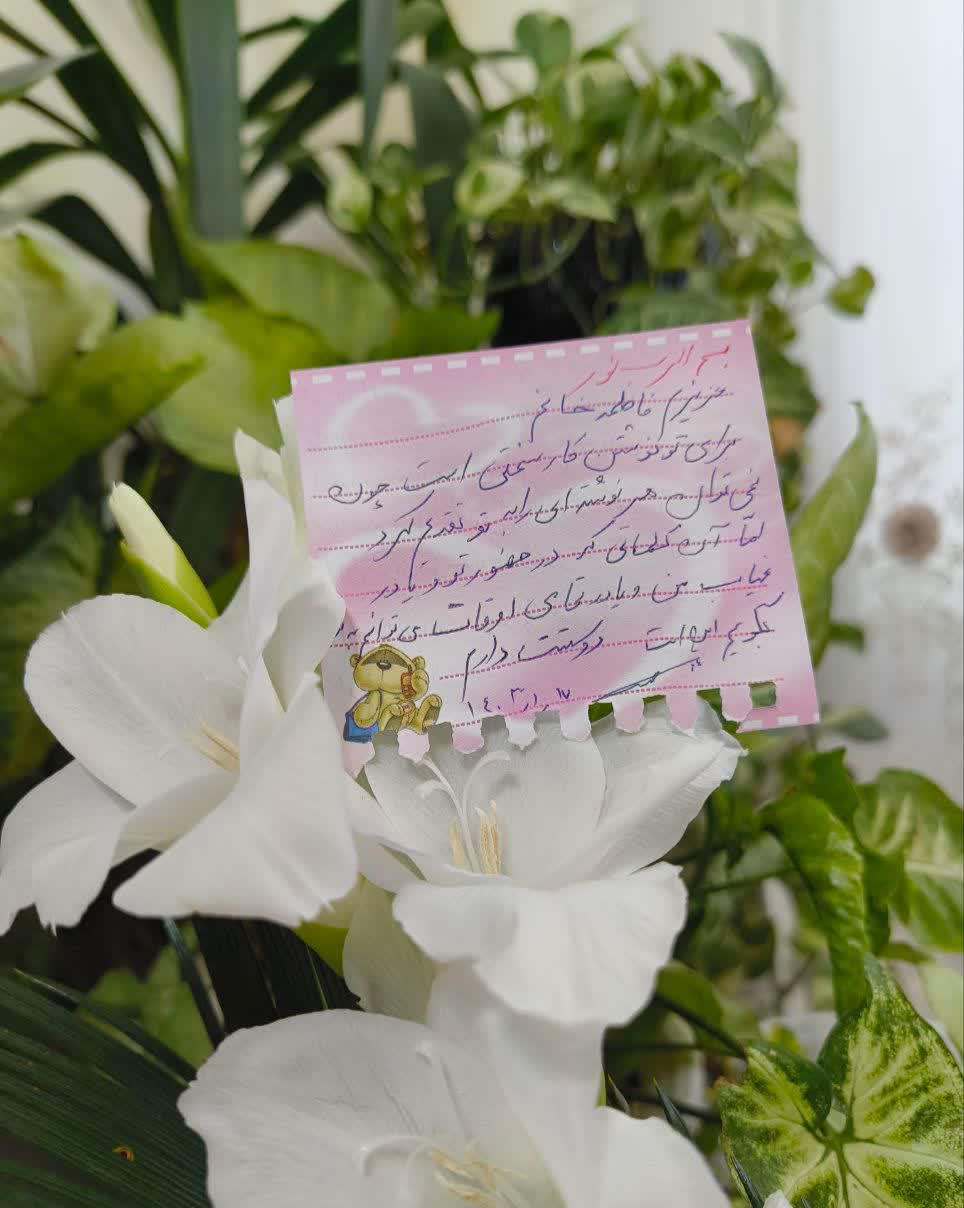 بسم الرب نور
عزیزم فاطمه خانم
برای تو نوشتن کار سختی است چون
نمی توان هر نوشته ای را به تو تقدیم کرد
امّا آن کلماتی که در حضور تو و یا در
غیاب من و یا در تمای اوقات می توانم به
بگویم این است دوستت دارم
۱۴۰۳،۱،۱۷